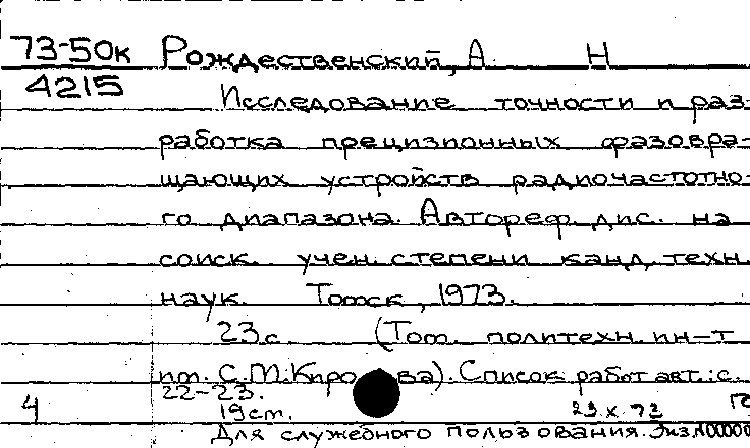 73-50к Рождественский, А. Н
4215
Исследование точности и раз-
работка прецизионных фазовра-
щающих устройств радиочастотно-
го диапазона. Автореф. дис. на
соиск. учен. степени канд. техн.
наук. Томск, 1973.
23с. (Том. политехн. ин-т
им. С.М. Киро ва). Список работ авт.: с.
22-23.
4 19см.
Для служебного пользования. Экз.